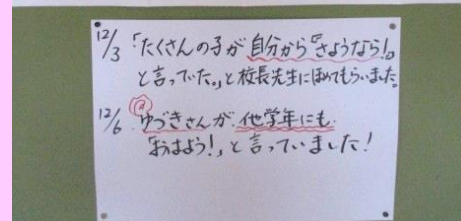 12/3 「たくさんの子が自分から『さようなら!』
と言っていた。」と校長先生にほめてもらいました。
12/6 ゆづきさんが、他学年にも
「おはよう!」と言っていました!